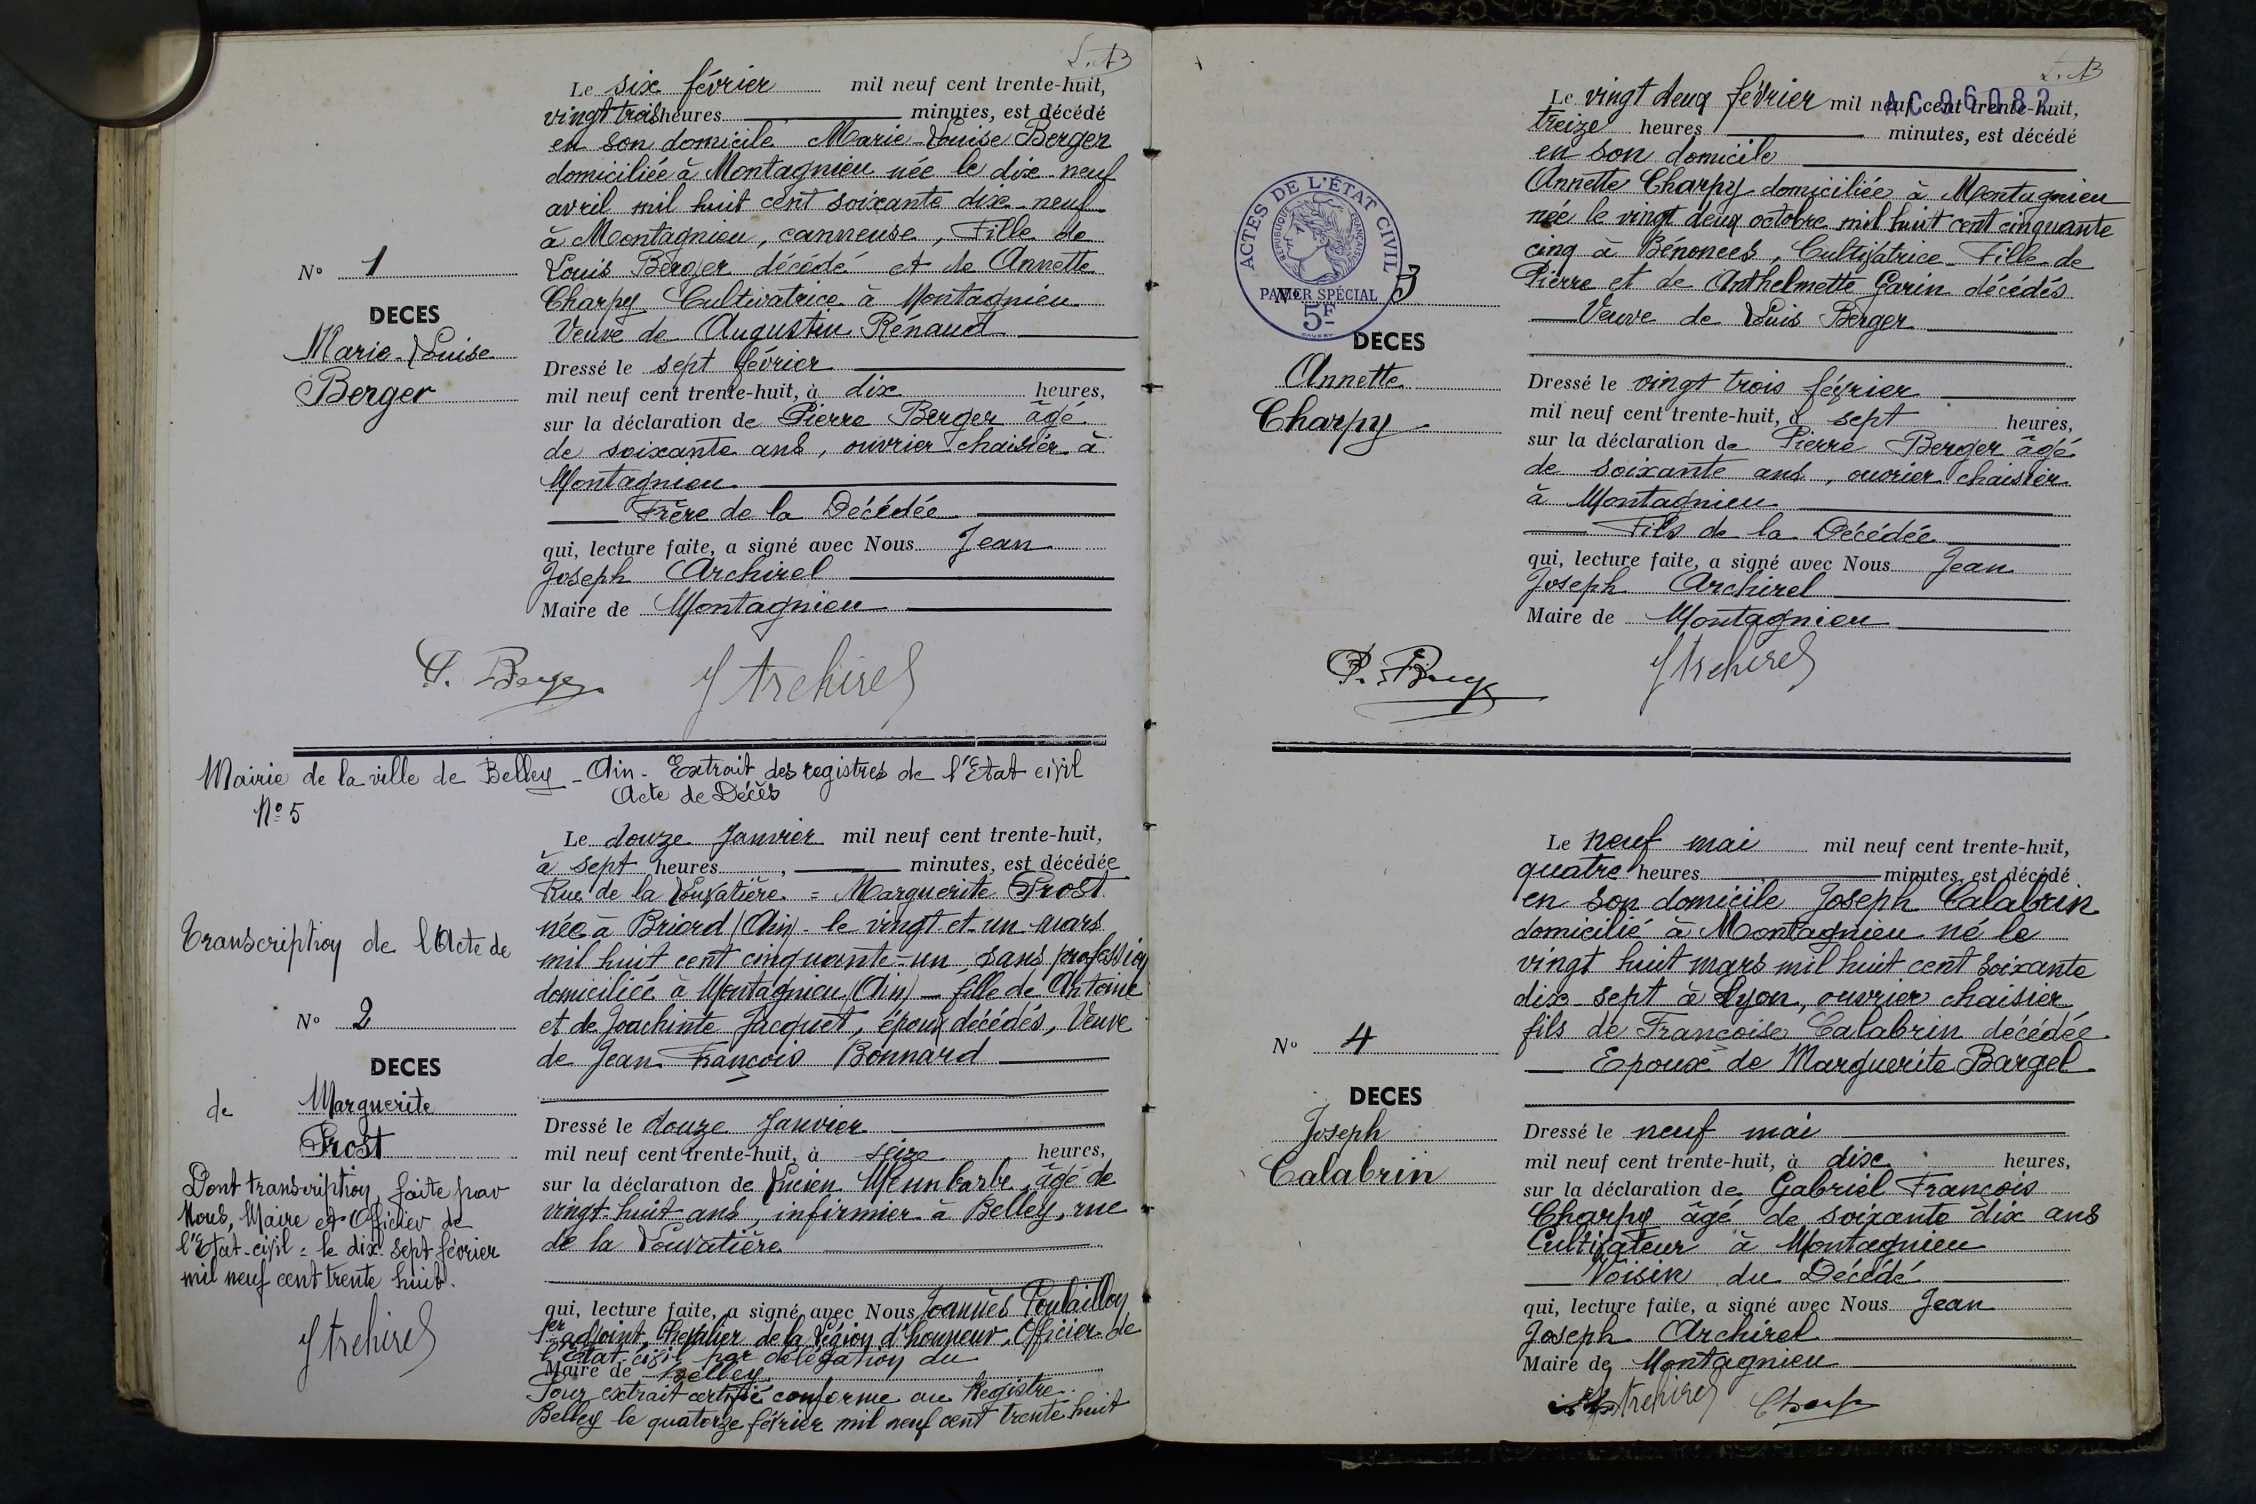 L. AB
Le six février mil neuf cent trente-huit,
vingt trois heures minutes, est décédé
en son domicile Marie-Louise Berger
domiciliée à Montagnieu née le dix-neuf
avril mil huit cent soixante dix-neuf
à Montagnieu, canneuse, Fille de
Louis Berger décédé et de Annette
Charpy Cultivatrice à Montagnieu
Veuve de Augustin Rénaud
N° 1
DECES
Marie-Louise
Berger
Dressé le sept février
mil neuf cent trente-huit, à dix heures,
sur la déclaration de Pierre Berger âgé
de soixante ans, ouvrier chaisier à
Montagnieu
Frère de la Décédée
qui, lecture faite, a signé avec Nous Jean
Joseph Archirel
Maire de Montagnieu
P. Berger J Archirel
Mairie de la ville de Belley - Ain - Extrait des registres de l'Etat civil
Acte de Décès
N° 5
Le douze Janvier mil neuf cent trente-huit,
à sept heures, minutes, est décédée
Rue de la Louvatière = Marguerite Prost
née à Briord (Ain) - le vingt et un mars
mil huit cent cinquante-un, sans profession
domiciliée à Montagnieu (Ain) - fille de Antoine
et de Joachinte Jacquet, époux décédés, Veuve
de Jean François Bonnard
Transcription de l'Acte de
N° 2
DECES
de Marguerite
Prost
Dont transcription, faite par
Nous, Maire et Officier de
l'Etat-civil = le dix sept février
mil neuf cent trente huit.
J Archirel
Dressé le douze Janvier
mil neuf cent trente-huit, à seize heures,
sur la déclaration de Lucien Meunbarbe, âgé de
vingt-huit ans, infirmier à Belley, rue
de la Louvatière
qui, lecture faite, a signé avec Nous Joannès Poulaillon
1er adjoint, Chevalier de la Légion d'honneur, Officier de
l'Etat-civil par délégation du
Maire de Belley
Pour extrait certifié conforme au Registre
Belley le quatorze février mil neuf cent trente huit
L. AB
AC 06082
Le vingt deux février mil neuf cent trente-huit,
treize heures minutes, est décédé
en son domicile
Annette Charpy domiciliée à Montagnieu
née le vingt deux octobre mil huit cent cinquante
cinq à Bénonces, Cultivatrice Fille de
Pierre et de Anthelmette Garin décédés
Veuve de Louis Berger
ACTES DE L'ÉTAT CIVIL
RÉPUBLIQUE FRANÇAISE
PAPIER SPÉCIAL
5F
N° 3
DECES
Annette
Charpy
Dressé le vingt trois février
mil neuf cent trente-huit, à sept heures,
sur la déclaration de Pierre Berger âgé
de soixante ans, ouvrier chaisier
à Montagnieu
Fils de la Décédée
qui, lecture faite, a signé avec Nous Jean
Joseph Archirel
Maire de Montagnieu
P. Berger J Archirel
Le neuf mai mil neuf cent trente-huit,
quatre heures minutes, est décédé
en son domicile Joseph Calabrin
domicilié à Montagnieu né le
vingt huit mars mil huit cent soixante
dix-sept à Lyon, ouvrier chaisier
fils de Françoise Calabrin décédée
Epoux de Marguerite Bargel
N° 4
DECES
Joseph
Calabrin
Dressé le neuf mai
mil neuf cent trente-huit, à dix heures,
sur la déclaration de Gabriel François
Charpy âgé de soixante dix ans
Cultivateur à Montagnieu
Voisin du Décédé
qui, lecture faite, a signé avec Nous Jean
Joseph Archirel
Maire de Montagnieu
J Archirel Charpy